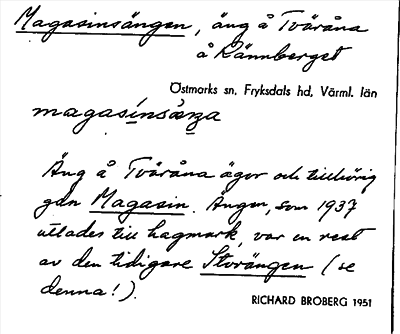 Magasinsängen, äng å Tvåråna
å Rännberget
Östmarks sn, Fryksdals hd, Värml. län
magasínsäŋa
Äng å Tvåråna ägor och tillhörig
gdn Magasin. Ängen, som 1937
utlades till hagmark, var en rest
av den tidigare Storängen (se
denna!).
RICHARD BROBERG 1951